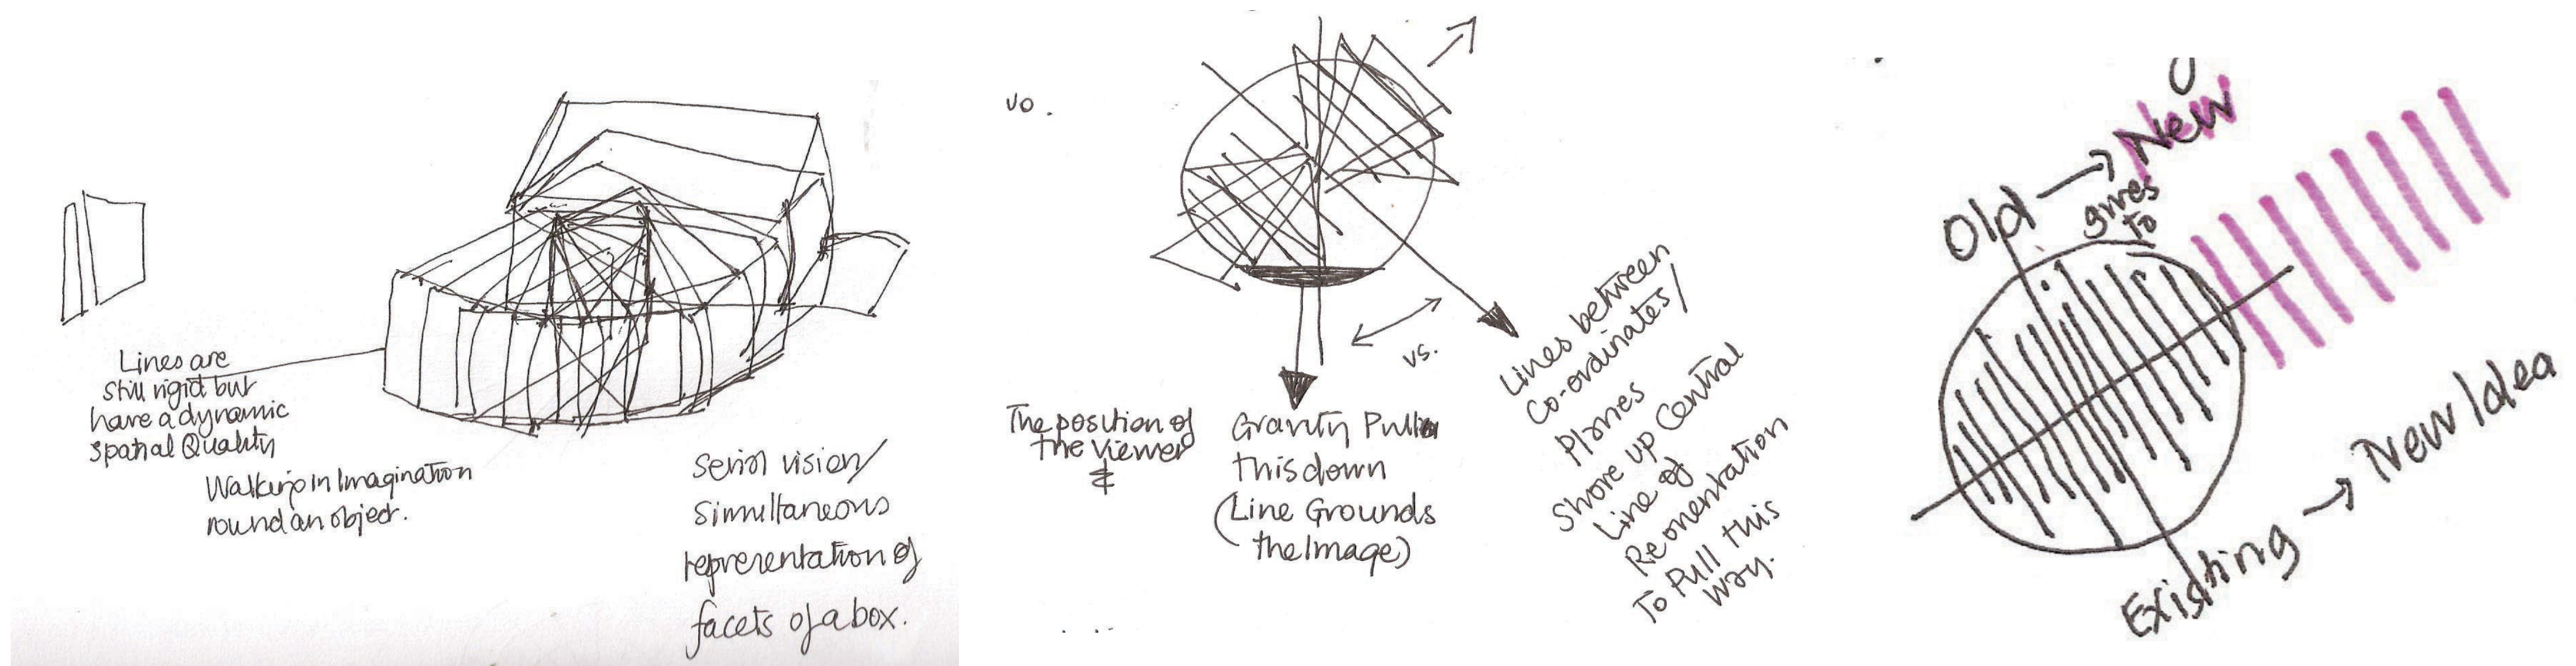 Lines are
still rigid but
have a dynamic
spatial Quality
Walking in Imagination
round an object.
serial vision/
simultaneous
representation of
facets of a box.
vo.
The position of
the viewer
&
Gravity Pulls
this down
(Line Grounds
the Image)
vs.
Lines between
Co-ordinates/
Planes
Shore up Central
Line of
Reorientation
To Pull this
way.
Old → New
gives
to
Existing → New Idea